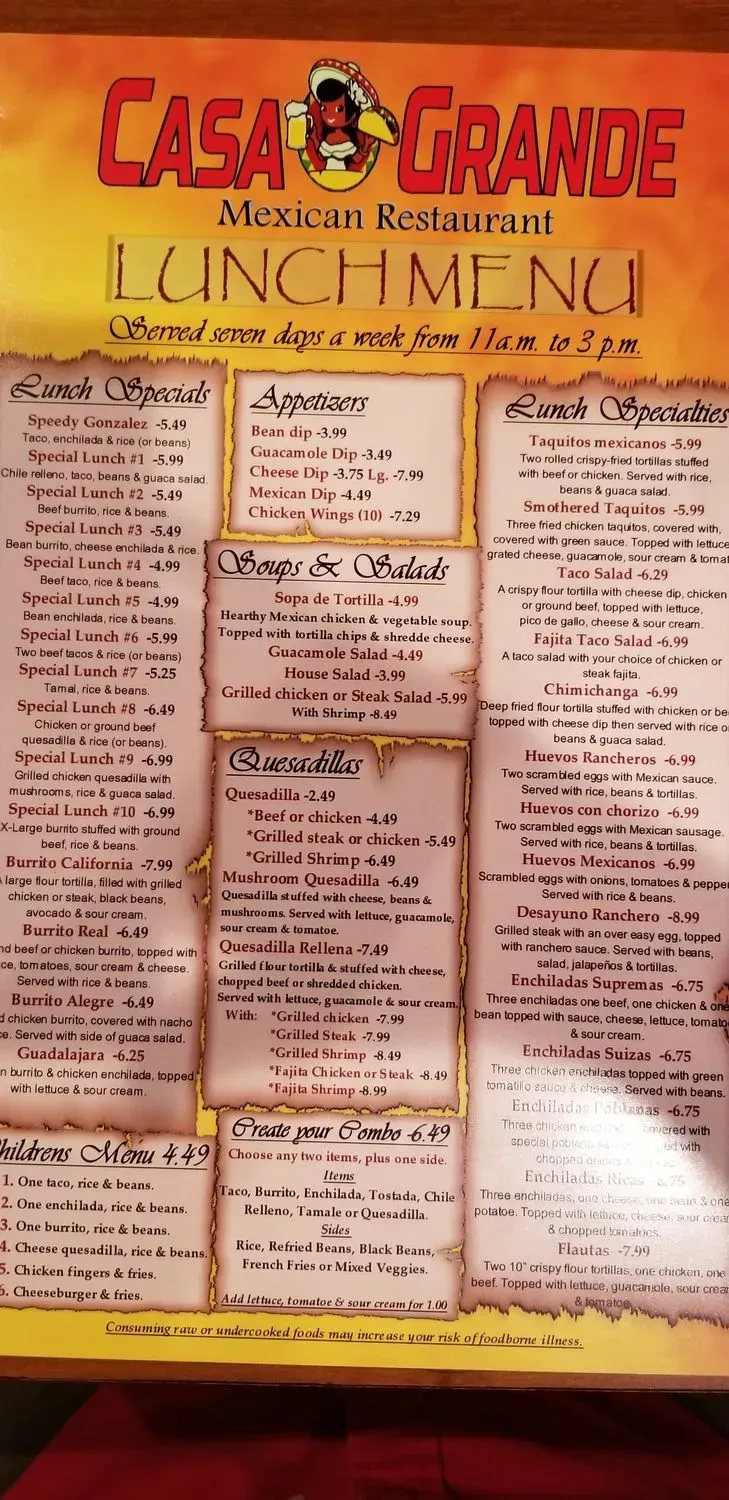 CASA GRANDE
Mexican Restaurant
LUNCH MENU
Served seven days a week from 11a.m. to 3 p.m.
Lunch Specials
Speedy Gonzalez -5.49
Taco, enchilada & rice (or beans)
Special Lunch #1 -5.99
Chile relleno, taco, beans & guaca salad.
Special Lunch #2 -5.49
Beef burrito, rice & beans.
Special Lunch #3 -5.49
Bean burrito, cheese enchilada & rice.
Special Lunch #4 -4.99
Beef taco, rice & beans.
Special Lunch #5 -4.99
Bean enchilada, rice & beans.
Special Lunch #6 -5.99
Two beef tacos & rice (or beans)
Special Lunch #7 -5.25
Tamal, rice & beans.
Special Lunch #8 -6.49
Chicken or ground beef
quesadilla & rice (or beans).
Special Lunch #9 -6.99
Grilled chicken quesadilla with
mushrooms, rice & guaca salad.
Special Lunch #10 -6.99
X-Large burrito stuffed with ground
beef, rice & beans.
Burrito California -7.99
large flour tortilla, filled with grilled
chicken or steak, black beans,
avocado & sour cream.
Burrito Real -6.49
beef or chicken burrito, topped with
tomatoes, sour cream & cheese.
Served with rice & beans.
Burrito Alegre -6.49
chicken burrito, covered with nacho
Served with side of guaca salad.
Guadalajara -6.25
burrito & chicken enchilada, topped
with lettuce & sour cream.
Childrens Menu 4.49
1. One taco, rice & beans.
2. One enchilada, rice & beans.
3. One burrito, rice & beans.
4. Cheese quesadilla, rice & beans.
5. Chicken fingers & fries.
6. Cheeseburger & fries.
Appetizers
Bean dip -3.99
Guacamole Dip -3.49
Cheese Dip -3.75 Lg. -7.99
Mexican Dip -4.49
Chicken Wings (10) -7.29
Soups & Salads
Sopa de Tortilla -4.99
Hearthy Mexican chicken & vegetable soup.
Topped with tortilla chips & shredde cheese.
Guacamole Salad -4.49
House Salad -3.99
Grilled chicken or Steak Salad -5.99
With Shrimp -8.49
Quesadillas
Quesadilla -2.49
*Beef or chicken -4.49
*Grilled steak or chicken -5.49
*Grilled Shrimp -6.49
Mushroom Quesadilla -6.49
Quesadilla stuffed with cheese, beans &
mushrooms. Served with lettuce, guacamole,
sour cream & tomatoe.
Quesadilla Rellena -7.49
Grilled flour tortilla & stuffed with cheese,
chopped beef or shredded chicken.
Served with lettuce, guacamole & sour cream.
With: *Grilled chicken -7.99
*Grilled Steak -7.99
*Grilled Shrimp -8.49
*Fajita Chicken or Steak -8.49
*Fajita Shrimp -8.99
Create your Combo -6.49
Choose any two items, plus one side.
Items
Taco, Burrito, Enchilada, Tostada, Chile
Relleno, Tamale or Quesadilla.
Sides
Rice, Refried Beans, Black Beans,
French Fries or Mixed Veggies.
Add lettuce, tomatoe & sour cream for 1.00
Lunch Specialties
Taquitos mexicanos -5.99
Two rolled crispy-fried tortillas stuffed
with beef or chicken. Served with rice,
beans & guaca salad.
Smothered Taquitos -5.99
Three fried chicken taquitos, covered with,
covered with green sauce. Topped with lettuce
grated cheese, guacamole, sour cream & tomat
Taco Salad -6.29
A crispy flour tortilla with cheese dip, chicken
or ground beef, topped with lettuce,
pico de gallo, cheese & sour cream.
Fajita Taco Salad -6.99
A taco salad with your choice of chicken or
steak fajita.
Chimichanga -6.99
Deep fried flour tortilla stuffed with chicken or be
topped with cheese dip then served with rice o
beans & guaca salad.
Huevos Rancheros -6.99
Two scrambled eggs with Mexican sauce.
Served with rice, beans & tortillas.
Huevos con chorizo -6.99
Two scrambled eggs with Mexican sausage.
Served with rice, beans & tortillas.
Huevos Mexicanos -6.99
Scrambled eggs with onions, tomatoes & pepper
Served with rice & beans.
Desayuno Ranchero -8.99
Grilled steak with an over easy egg, topped
with ranchero sauce. Served with beans,
salad, jalapeños & tortillas.
Enchiladas Supremas -6.75
Three enchiladas one beef, one chicken & one
bean topped with sauce, cheese, lettuce, tomato
& sour cream.
Enchiladas Suizas -6.75
Three chicken enchiladas topped with green
tomatillo sauce & cheese. Served with beans.
Enchiladas Poblanas -6.75
Three chicken covered with
special with
chopped
Enchiladas Ricas -6.75
Three enchiladas, one cheese, one bean & one
potatoe. Topped with lettuce, cheese, sour crear
& chopped tomatoes.
Flautas -7.99
Two 10" crispy flour tortillas, one chicken, one
beef. Topped with lettuce, guacamole, sour crear
& tomatoe.
Consuming raw or undercooked foods may increase your risk of foodborne illness.